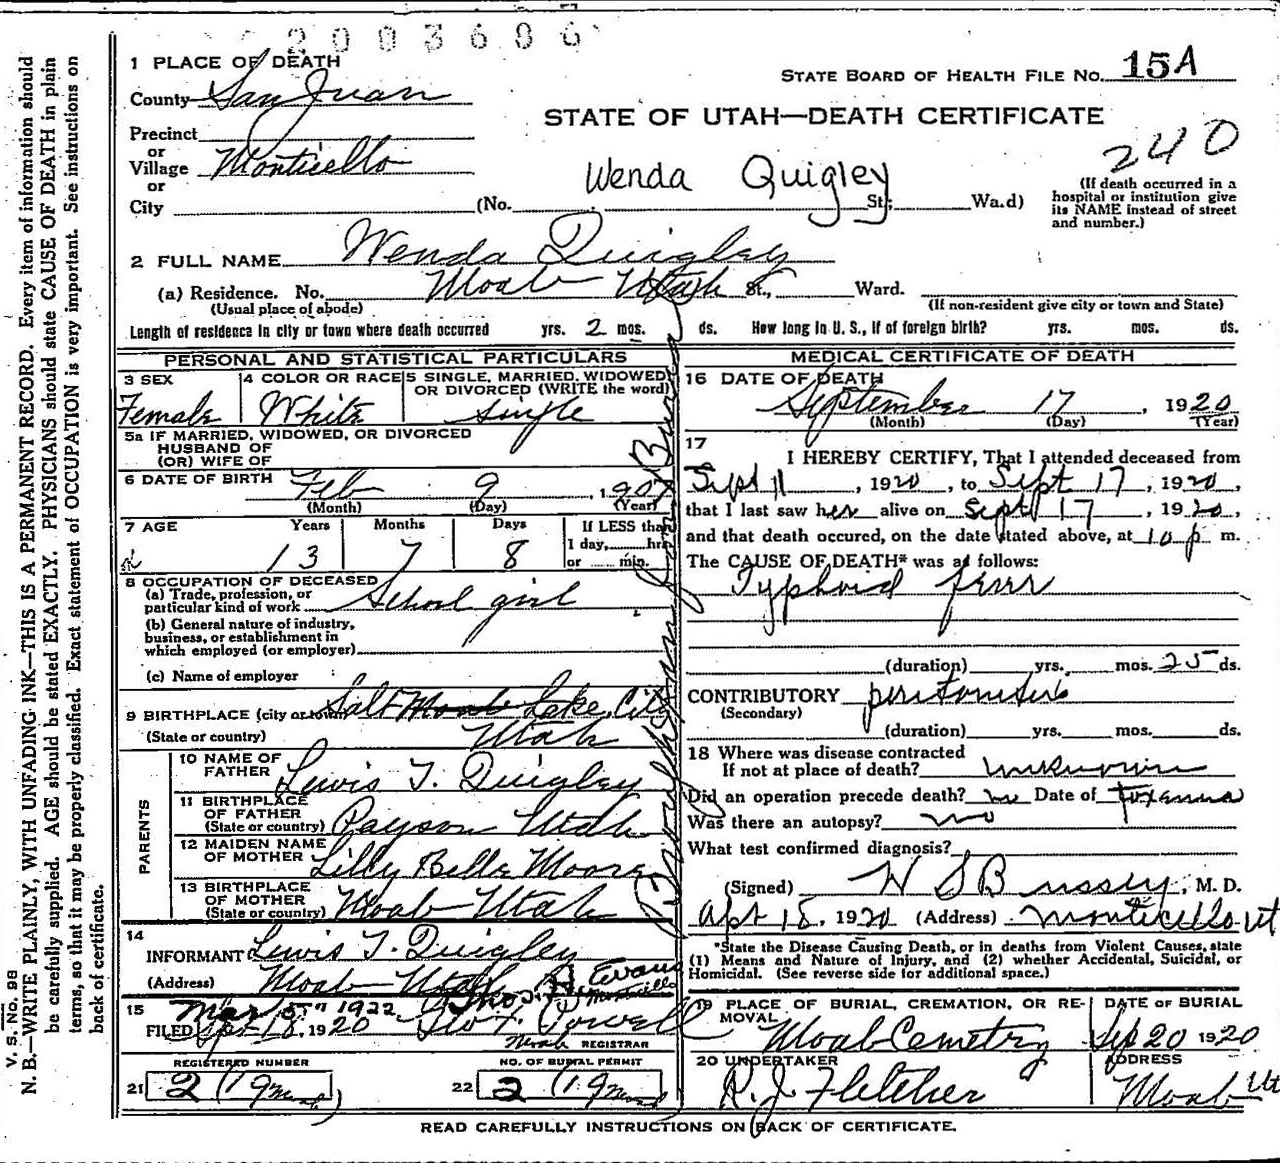 2003686
1 PLACE OF DEATH
STATE BOARD OF HEALTH FILE NO. 15A
County San Juan
STATE OF UTAH—DEATH CERTIFICATE
Precinct
240
or
Village Monticello
Wenda Quigley
or
City (No. St; Wa.d)
(If death occurred in a
hospital or institution give
its NAME instead of street
and number.)
2 FULL NAME Wenda Quigley
(a) Residence. No. Moab Utah St., Ward.
(Usual place of abode) (If non-resident give city or town and State)
Length of residence in city or town where death occurred yrs. 2 mos. ds. How long in U. S., if of foreign birth? yrs. mos. ds.
PERSONAL AND STATISTICAL PARTICULARS
3 SEX Female
4 COLOR OR RACE White
5 SINGLE, MARRIED, WIDOWED
OR DIVORCED (WRITE the word)
single
5a IF MARRIED, WIDOWED, OR DIVORCED
HUSBAND OF
(OR) WIFE OF
6 DATE OF BIRTH Feb 9, 1907
(Month) (Day) (Year)
7 AGE Years Months Days If LESS than
1 day, hrs
or min.
13 7 8
8 OCCUPATION OF DECEASED
(a) Trade, profession, or
particular kind of work School girl
(b) General nature of industry,
business, or establishment in
which employed (or employer)
(c) Name of employer
9 BIRTHPLACE (city or town) Salt Moab Lake City
(State or country) Utah
PARENTS
10 NAME OF
FATHER Lewis T. Quigley
11 BIRTHPLACE
OF FATHER
(State or country) Payson Utah
12 MAIDEN NAME
OF MOTHER Lilly Belle Moore
13 BIRTHPLACE
OF MOTHER
(State or country) Moab Utah
14
INFORMANT Lewis T. Quigley
(Address) Moab Utah
Thos. H. Evans
Monticello
15 Mar 5" 1922
FILED Sept 18. 1920 Powell
Moab REGISTRAR
REGISTERED NUMBER NO. OF BURIAL PERMIT
21 2 (19
22 2 (19
MEDICAL CERTIFICATE OF DEATH
16 DATE OF DEATH
September 17, 1920
(Month) (Day) (Year)
17
I HEREBY CERTIFY, That I attended deceased from
Sept 11, 1920, to Sept 17, 1920,
that I last saw her alive on Sept 17, 1920,
and that death occured, on the date stated above, at 10 p m.
The CAUSE OF DEATH* was as follows:
Typhoid fever
(duration) yrs. mos. 25 ds.
CONTRIBUTORY peritonitis
(Secondary)
(duration) yrs. mos. ds.
18 Where was disease contracted
If not at place of death? unknown
Did an operation precede death? no Date of toxemia
Was there an autopsy? no
What test confirmed diagnosis?
(Signed) W S Bussey, M. D.
Sept 18. 1920 (Address) Monticello Ut
*State the Disease Causing Death, or in deaths from Violent Causes, state
(1) Means and Nature of Injury, and (2) whether Accidental, Suicidal, or
Homicidal. (See reverse side for additional space.)
19 PLACE OF BURIAL, CREMATION, OR RE-
MOVAL Moab Cemetry
DATE OF BURIAL
Sep 20 1920
20 UNDERTAKER
R. J. Fletcher
ADDRESS
Moab Ut
READ CAREFULLY INSTRUCTIONS ON BACK OF CERTIFICATE.
V. S.—No. 98
N. B.—WRITE PLAINLY, WITH UNFADING INK—THIS IS A PERMANENT RECORD. Every item of information should
be carefully supplied. AGE should be stated EXACTLY. PHYSICIANS should state CAUSE OF DEATH in plain
terms, so that it may be properly classified. Exact statement of OCCUPATION is very important. See instructions on
back of certificate.